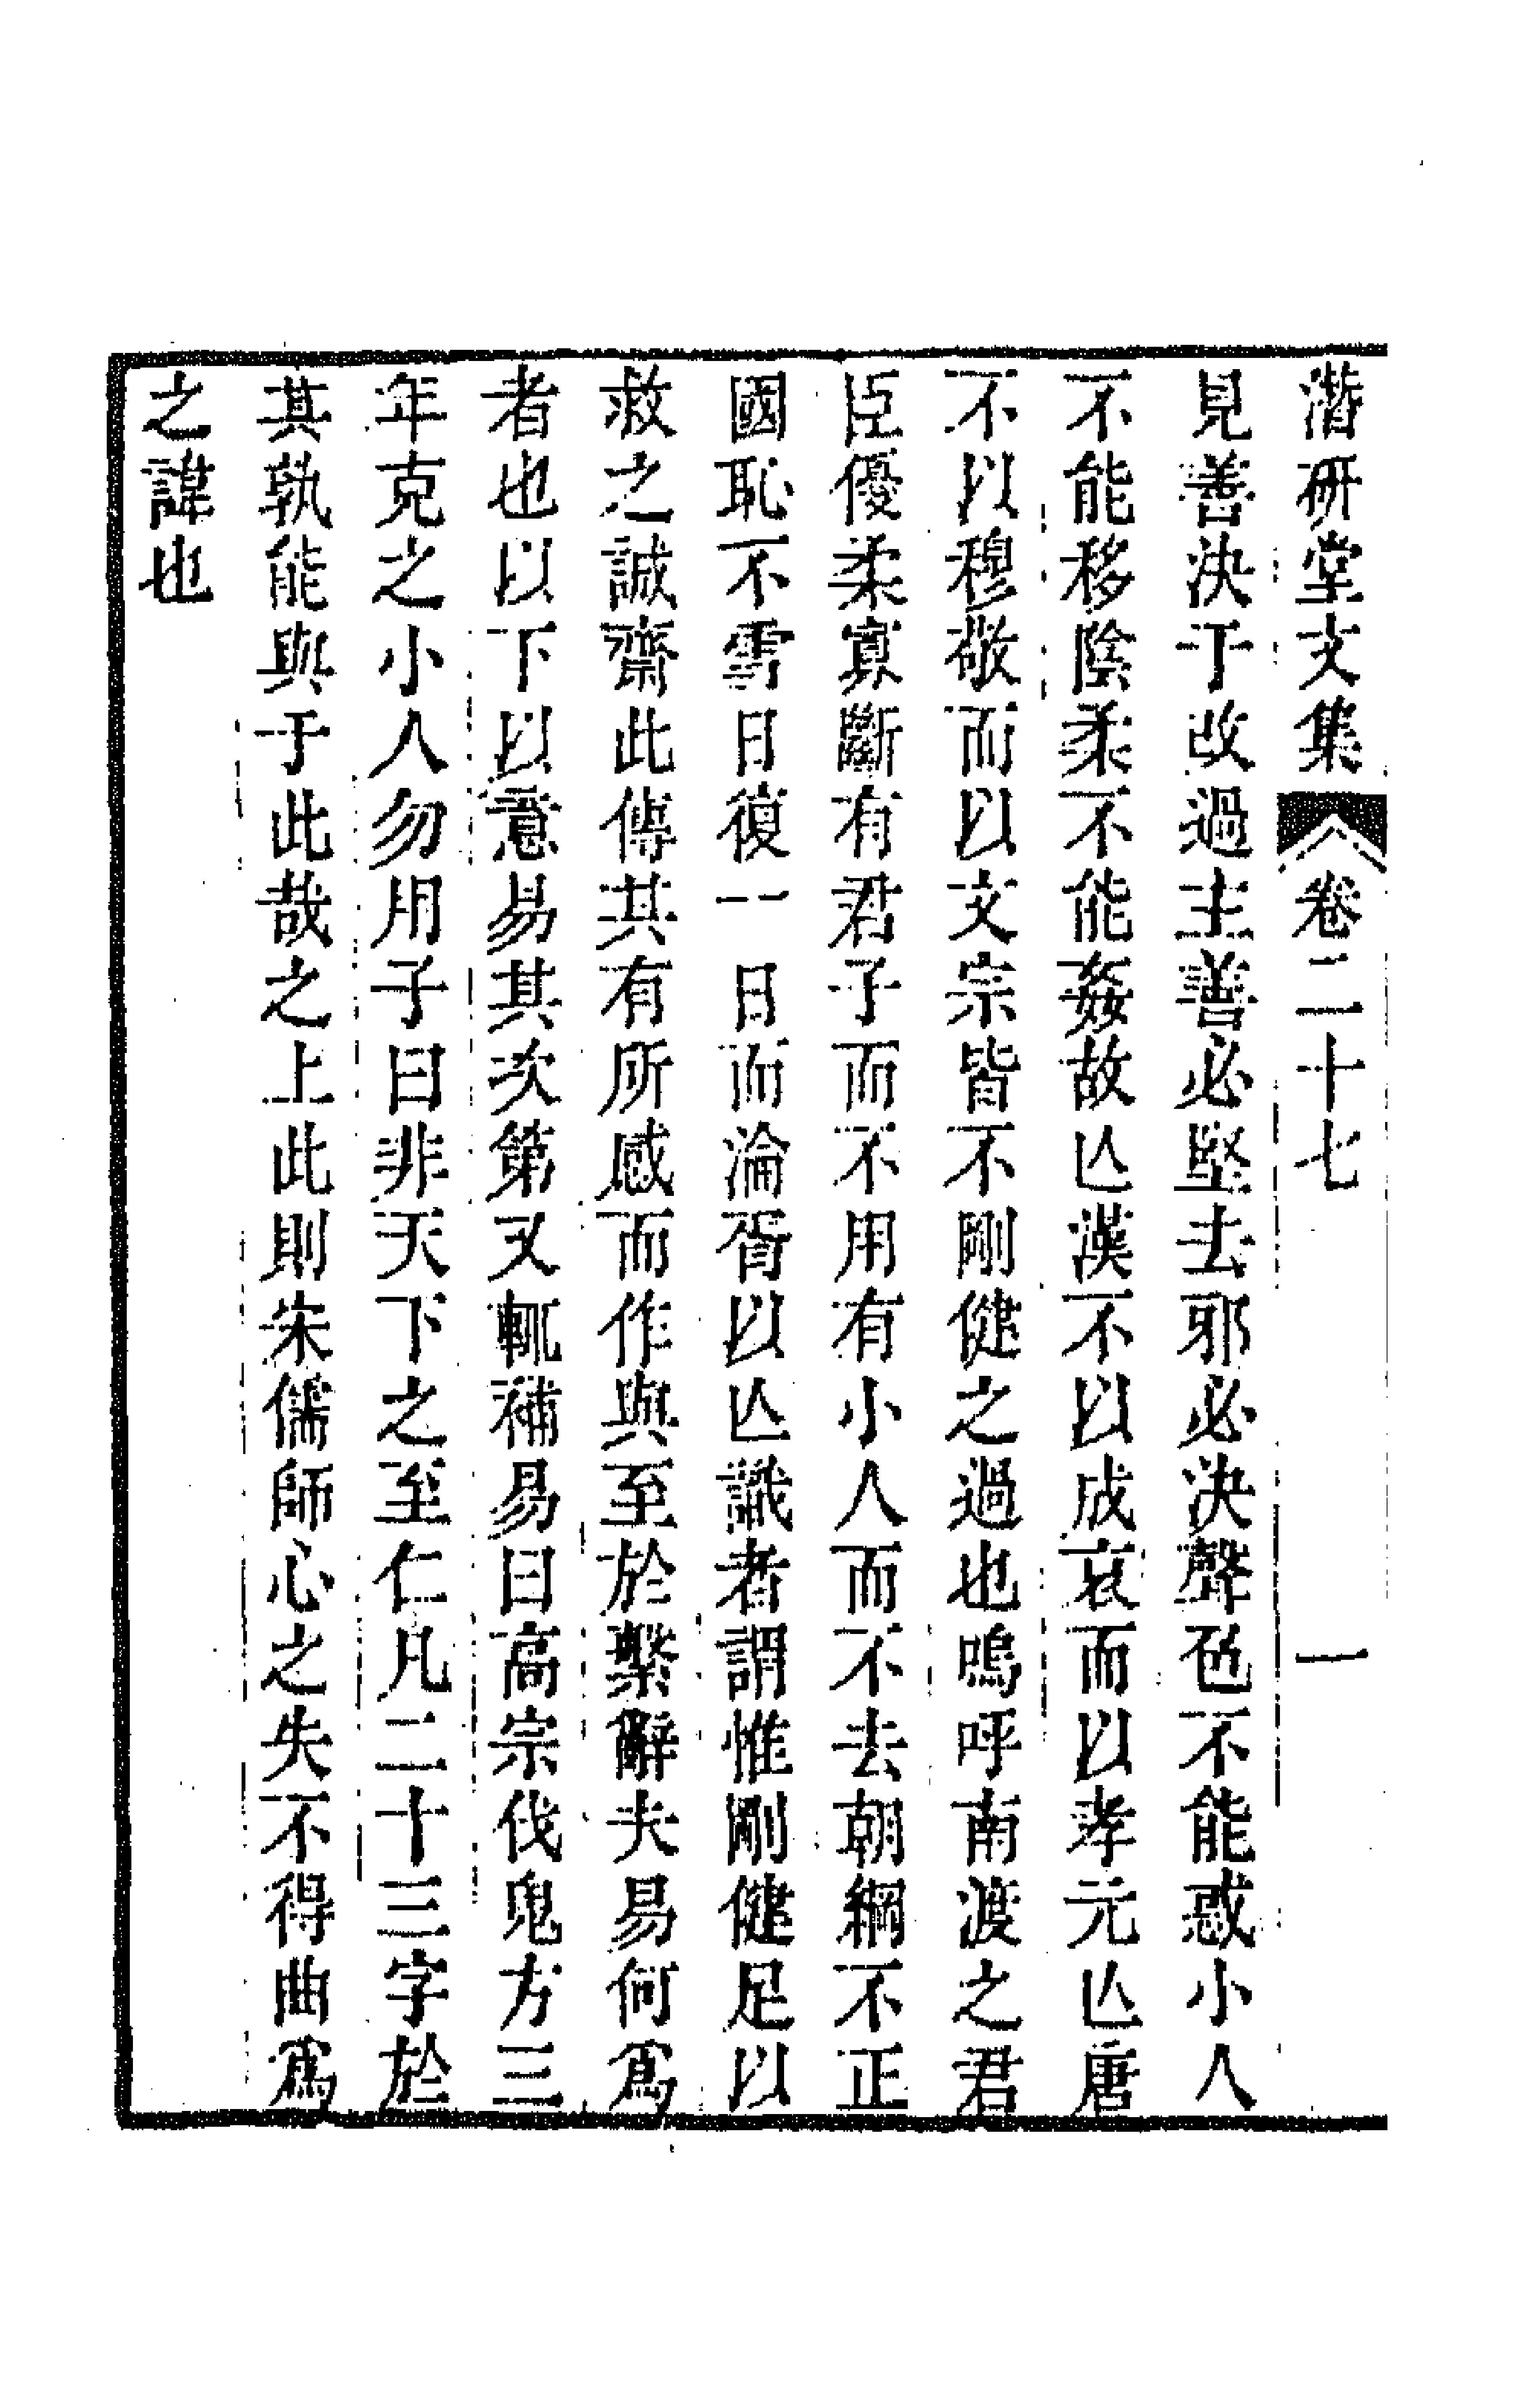 潛研堂文集 卷二十七 一
見善決于改過主善必堅去邪必決聲色不能惑小人
不能移陰柔不能姦故亾漢不以成哀而以孝元亾唐
不以穆敬而以文宗皆不剛健之過也嗚呼南渡之君
臣優柔寡斷有君子而不用有小人而不去朝綱不正
國恥不雪日復一日而淪胥以亾識者謂惟剛健足以
救之誠齋此傳其有所感而作與至於繫辭夫易何爲
者也以下以意易其次第又輒補易曰高宗伐鬼方三
年克之小人勿用子曰非天下之至仁凡二十三字於
其孰能與于此哉之上此則宋儒師心之失不得曲爲
之諱也